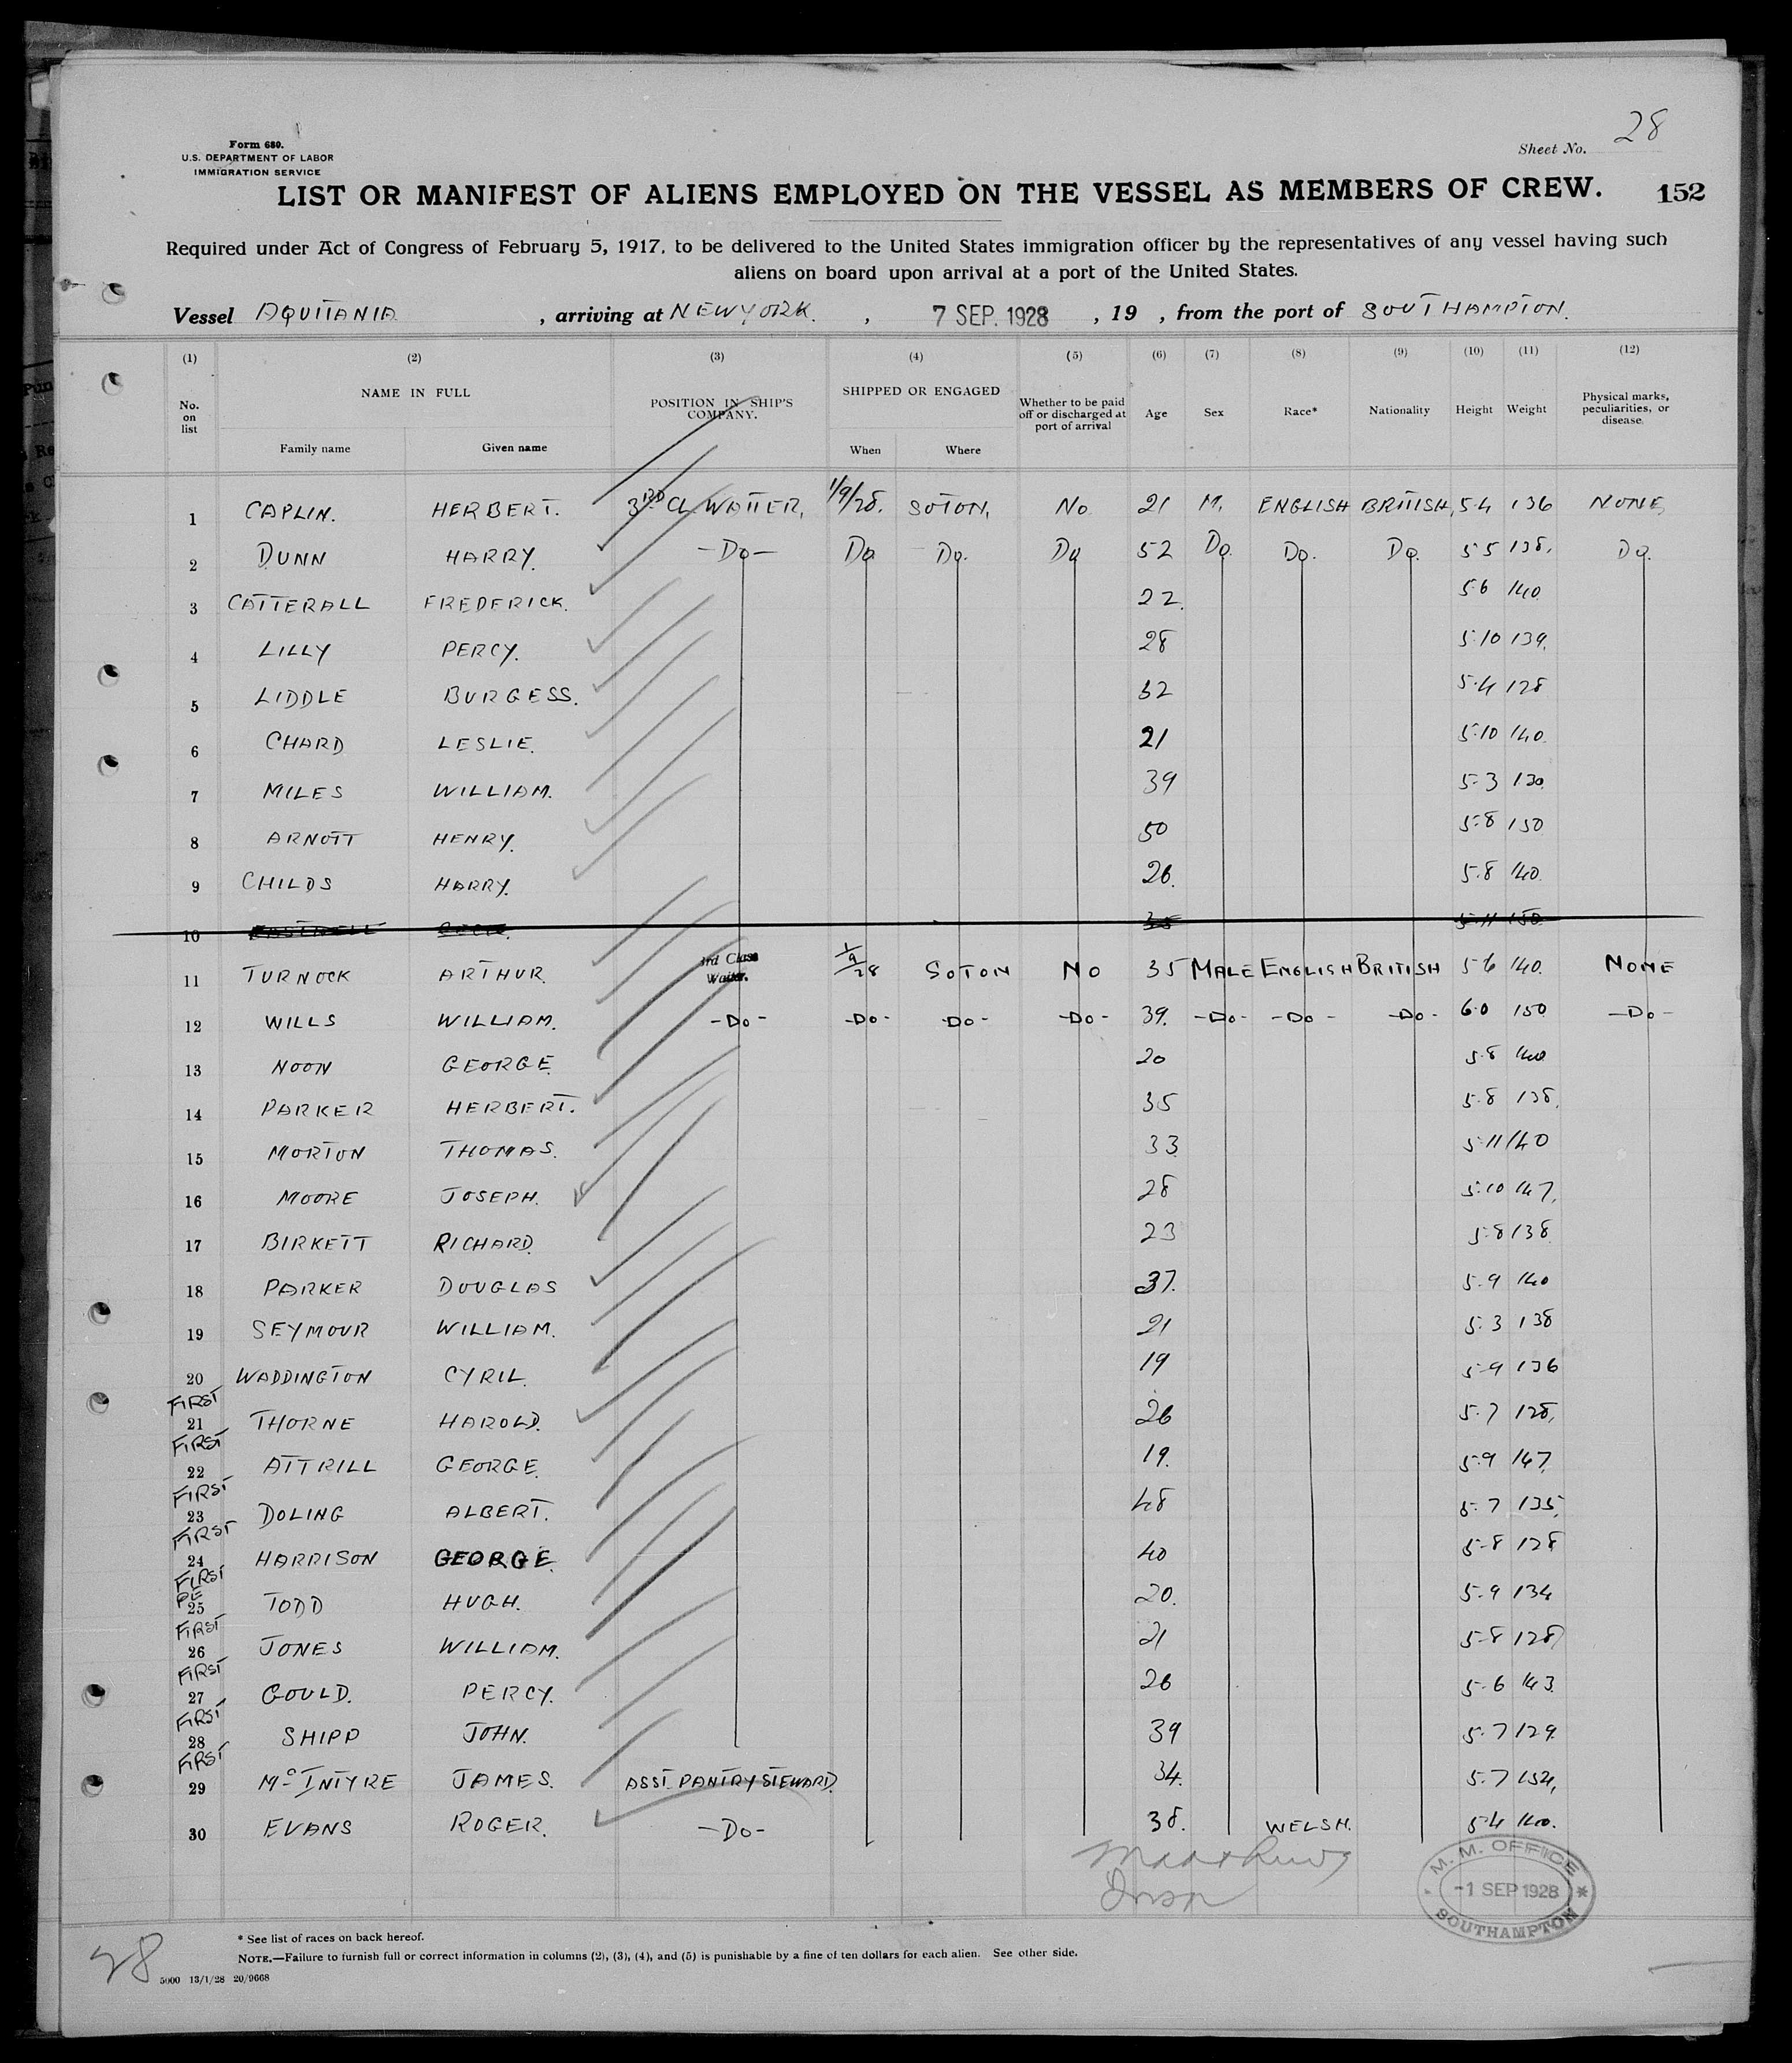 28
Form 680.
Sheet No.
U.S. DEPARTMENT OF LABOR
IMMIGRATION SERVICE
LIST OR MANIFEST OF ALIENS EMPLOYED ON THE VESSEL AS MEMBERS OF CREW. 152
Required under Act of Congress of February 5, 1917, to be delivered to the United States immigration officer by the representatives of any vessel having such
aliens on board upon arrival at a port of the United States.
Vessel AQUITANIA , arriving at NEW YORK. , 7 SEP. 1928 , 19 , from the port of SOUTHAMPTON.
(1) (2) (3) (4) (5) (6) (7) (8) (9) (10) (11) (12)
No. on list NAME IN FULL POSITION IN SHIP'S COMPANY. SHIPPED OR ENGAGED Whether to be paid off or discharged at port of arrival Age Sex Race* Nationality Height Weight Physical marks, peculiarities, or disease
Family name Given name When Where
1 CAPLIN. HERBERT. 3RD CL. WAITER, 1/9/28. SOTON, No 21 M. ENGLISH BRITISH, 5.4 136 NONE,
2 DUNN HARRY. -Do- Do Do. Do 52 Do. Do. Do. 5 5 138. Do.
3 CATTERALL FREDERICK. 22. 5.6 140
4 LILLY PERCY. 28 5.10 139.
5 LIDDLE BURGESS. 32 5.4 128
6 CHARD LESLIE. 21 5.10 140.
7 MILES WILLIAM. 39 5.3 130.
8 ARNOTT HENRY. 50 5.8 150
9 CHILDS HARRY. 26. 5.8 140.
10 5.11 150
11 TURNOCK ARTHUR. 3rd Class Waiter. 1/9/28 SOTON NO 35 MALE ENGLISH BRITISH 5 6 140. NONE
12 WILLS WILLIAM. -Do- -Do- -Do- -Do- 39. -Do- -Do- -Do- 6.0 150 -Do-
13 NOON GEORGE. 20 5.8 140
14 PARKER HERBERT. 35 5.8 138.
15 MORTON THOMAS. 33 5.11 140
16 MOORE JOSEPH. 28 5.10 147.
17 BIRKETT RICHARD. 23 5.8 138
18 PARKER DOUGLAS 37. 5.9 140
19 SEYMOUR WILLIAM. 21 5.3 138
20 WADDINGTON CYRIL. 19 5.9 136
FIRST 21 THORNE HAROLD. 26 5.7 128,
FIRST 22 ATTRILL GEORGE. 19. 5.9 147,
FIRST 23 DOLING ALBERT. 48 5.7 135,
FIRST 24 HARRISON GEORGE. 40 5.8 128
FIRST 25 TODD HUGH. 20. 5.9 134
FIRST 26 JONES WILLIAM. 21 5.8 128
FIRST 27 GOULD. PERCY. 26 5.6 143.
FIRST 28 SHIPP JOHN. 39 5.7 129.
FIRST 29 McINTYRE JAMES. ASST. PANTRY STEWARD. 34. 5.7 154,
30 EVANS ROGER. -Do- 38. WELSH. 5.4 140.
M. M. OFFICE
-1 SEP 1928
SOUTHAMPTON
* See list of races on back hereof.
NOTE.—Failure to furnish full or correct information in columns (2), (3), (4), and (5) is punishable by a fine of ten dollars for each alien. See other side.
28
5000 13/1/28 20/9668